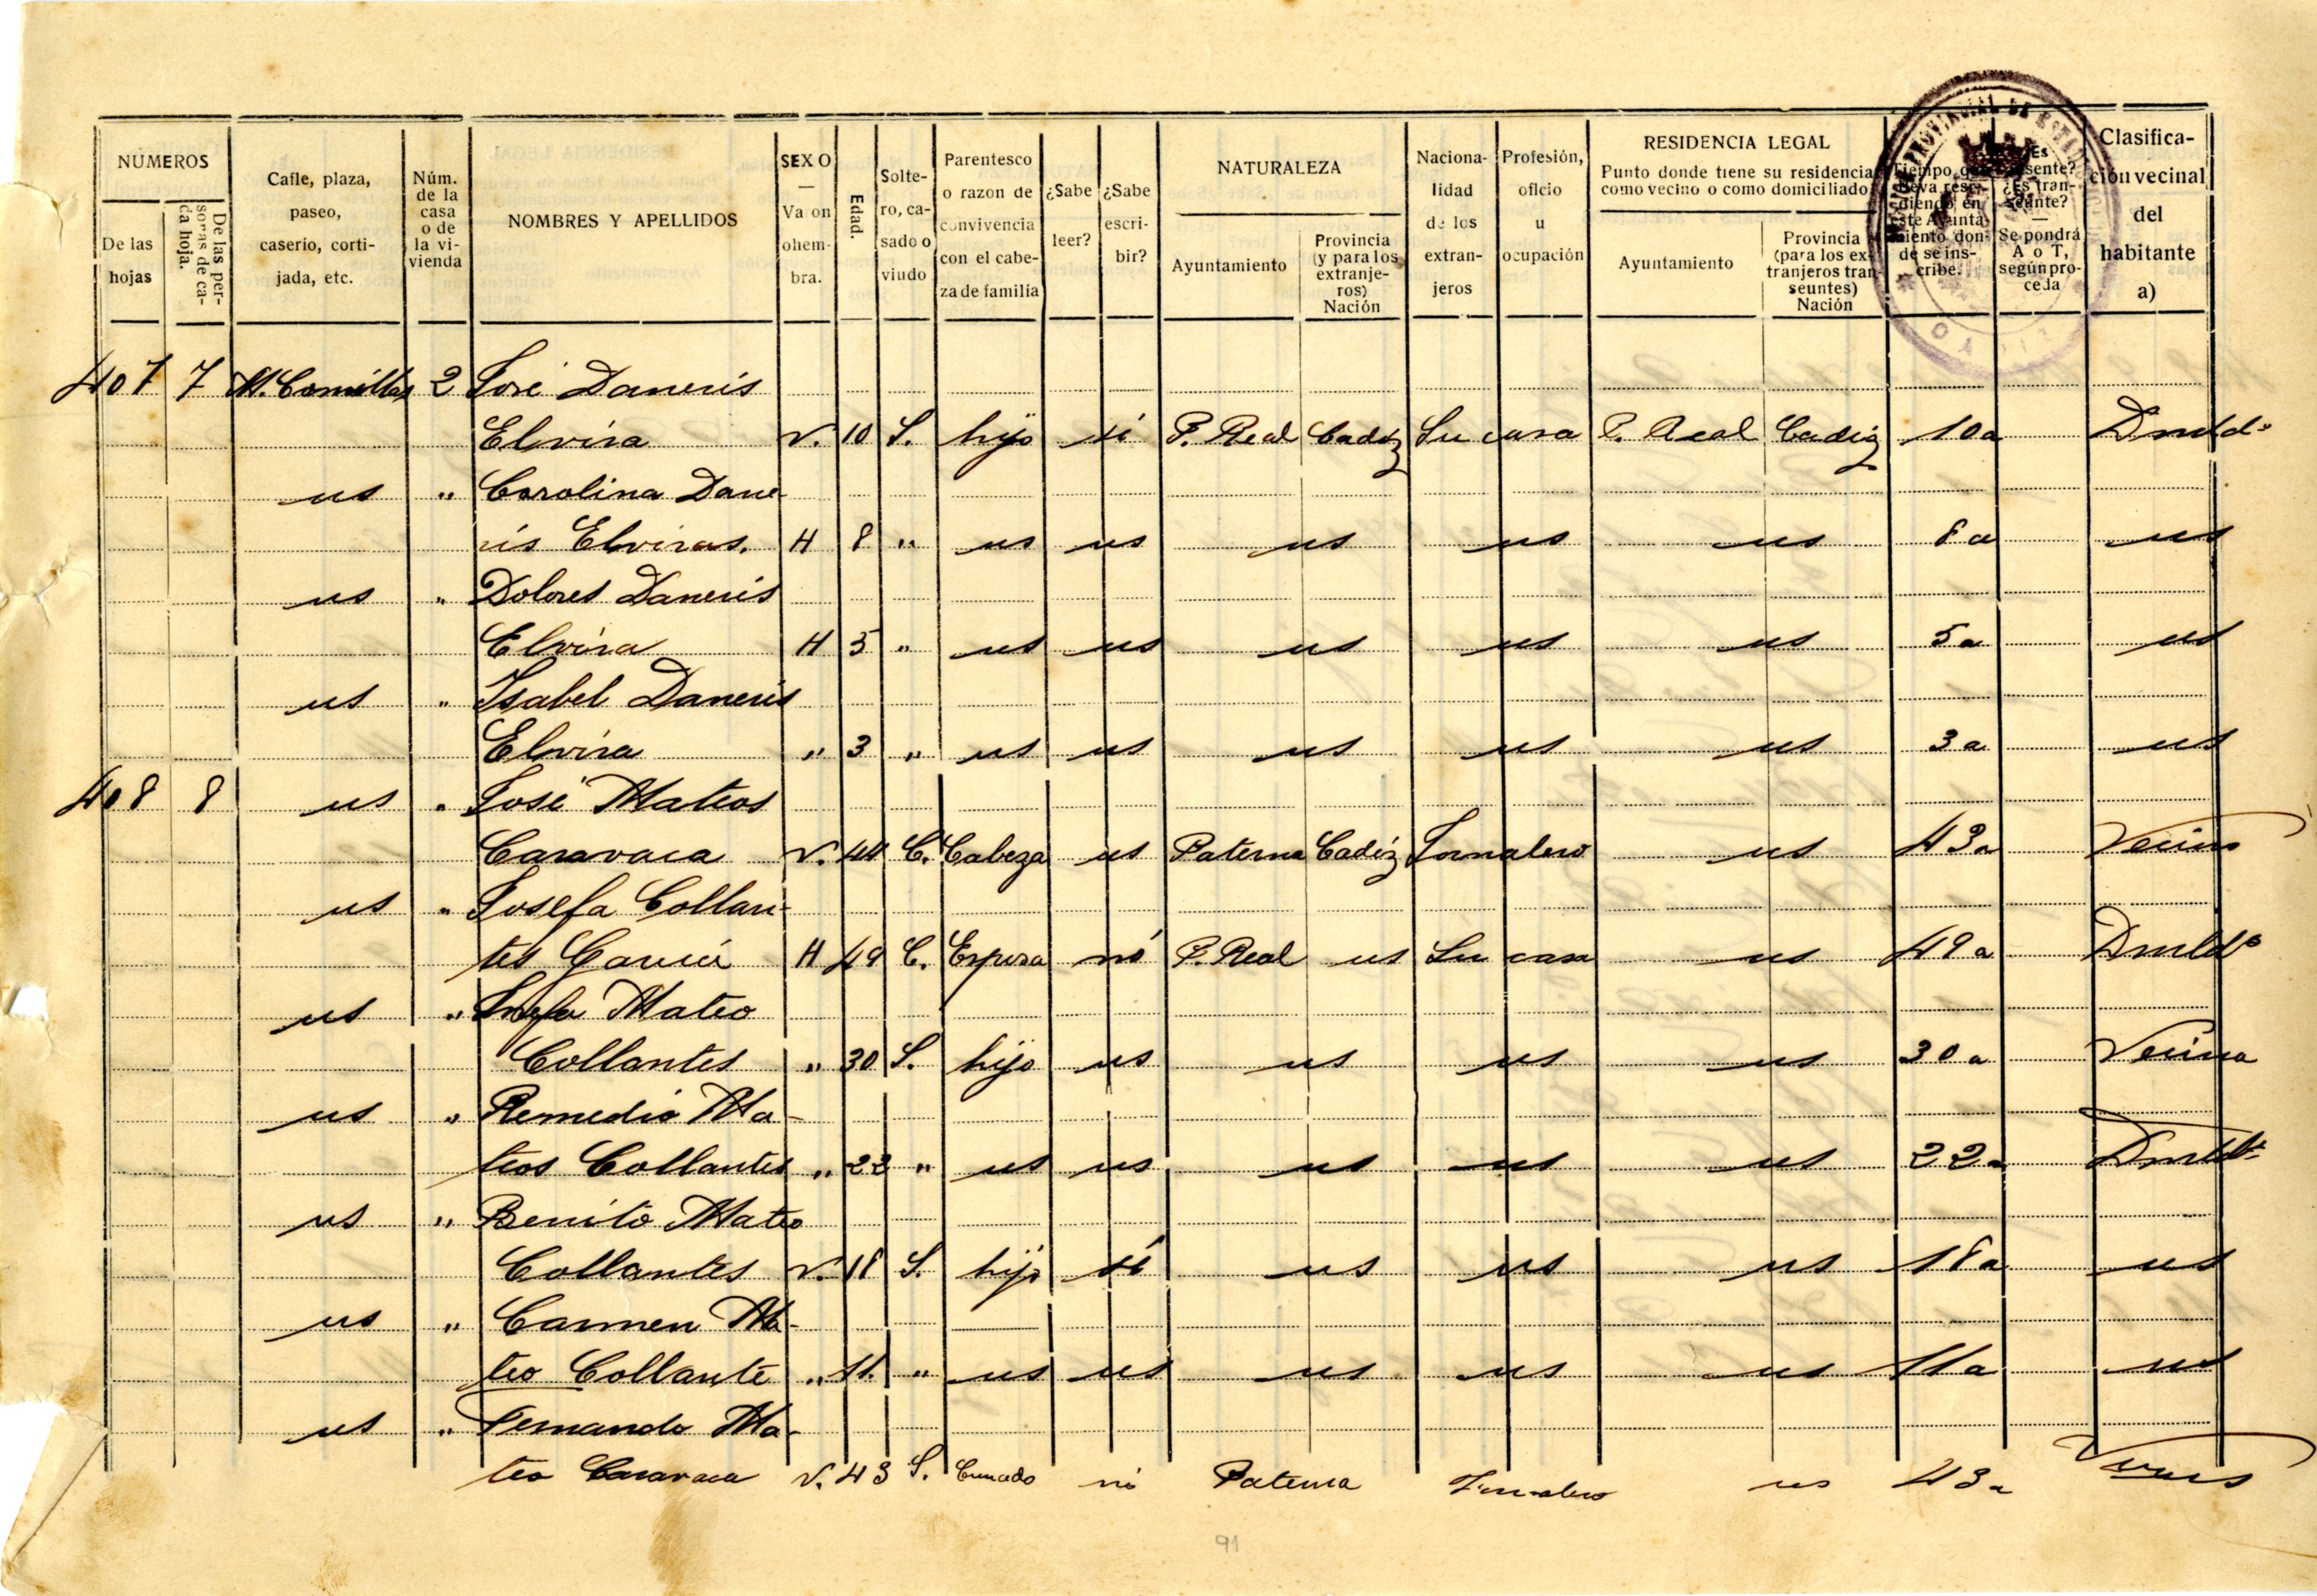 NÚMEROS
De las hojas
De las personas de cada hoja.
Calle, plaza, paseo, caserio, cortijada, etc.
Núm. de la casa o de la vivienda
NOMBRES Y APELLIDOS
SEXO — Va on ohembra.
Edad.
Soltero, casado o viudo
Parentesco o razon de convivencia con el cabeza de familia
¿Sabe leer?
¿Sabe escribir?
NATURALEZA
Ayuntamiento
Provincia (y para los extranjeros) Nación
Nacionalidad de los extranjeros
Profesión, oficio u ocupación
RESIDENCIA LEGAL
Punto donde tiene su residencia como vecino o como domiciliado
Ayuntamiento
Provincia (para los extranjeros transeuntes) Nación
Tiempo que lleva residiendo en este Ayuntamiento donde se inscribe.
Es
¿Es transeunte? — Se pondrá A o T, según proceda
Clasificación vecinal del habitante a)
407 7 M. Comillas 2 José Daneris
Elvira V. 10 S. hijo si P. Real Cadiz Su casa P. Real Cadiz 10a Dmld.º
us " Carolina Dane-
ris Elviras. H 8 " us us us us us 8a us
us " Dolores Daneris
Elvira H 5 " us us us us us 5a us
us " Isabel Daneris
Elvira " 3 " us us us us us 3a us
408 8 us " José Mateos
Caravaca V. 44 C. Cabeza us Paterna Cadiz Jornalero us 43a Vecino
us " Josefa Collan-
tes García H 49 C. Esposa nó P. Real us Su casa us 49a Dmldº
us " Mateo
Collantes " 30 S. hijo us us us us 30a Vecina
us " Remedio Ma-
teos Collantes " 22 " us us us us us 22a Dmldº
us " Benito Mateo
Collantes V. 18 S. hijo si us us us 18a us
us " Carmen Ma-
teo Collante " 11. " us us us us us 11a us
us " Fernando Ma-
teo Caravaca V. 43 S. Cunado nó Paterna Jornalero us 43a
91